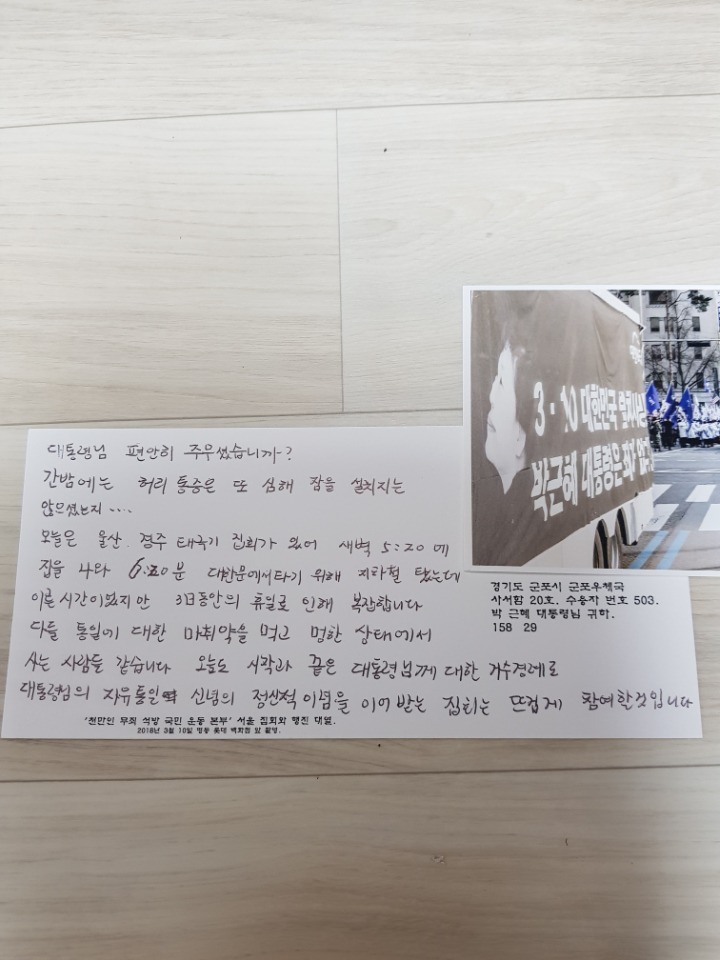 3·10 대한민국
박근혜 대통령은 죄가
대통령님 편안히 주무셨습니까?
간밤에는 허리 통증은 또 심해 잠을 설치지는
않으셨는지....
오늘은 울산. 경주 태극기 집회가 있어 새벽 5:20에
집을 나와 6:20분 대한문에서 타기 위해 지하철 탔는데
이른 시간이었지만 3日동안의 휴일로 인해 복잡합니다
다들 통일에 대한 마취약을 먹고 멍한 상태에서
사는 사람들 같습니다 오늘도 시작과 끝은 대통령님께 대한 거수경례로
대통령님의 자유통일 신념의 정신적 이념을 이어 받는 집회는 뜨겁게 참여할것입니다
'천만인 무죄 석방 국민 운동 본부' 서울 집회와 행진 대열.
2018년 3월 10일 명동 롯데 백화점 앞 촬영.
경기도 군포시 군포우체국
사서함 20호. 수용자 번호 503.
박 근혜 대통령님 귀하.
158 29